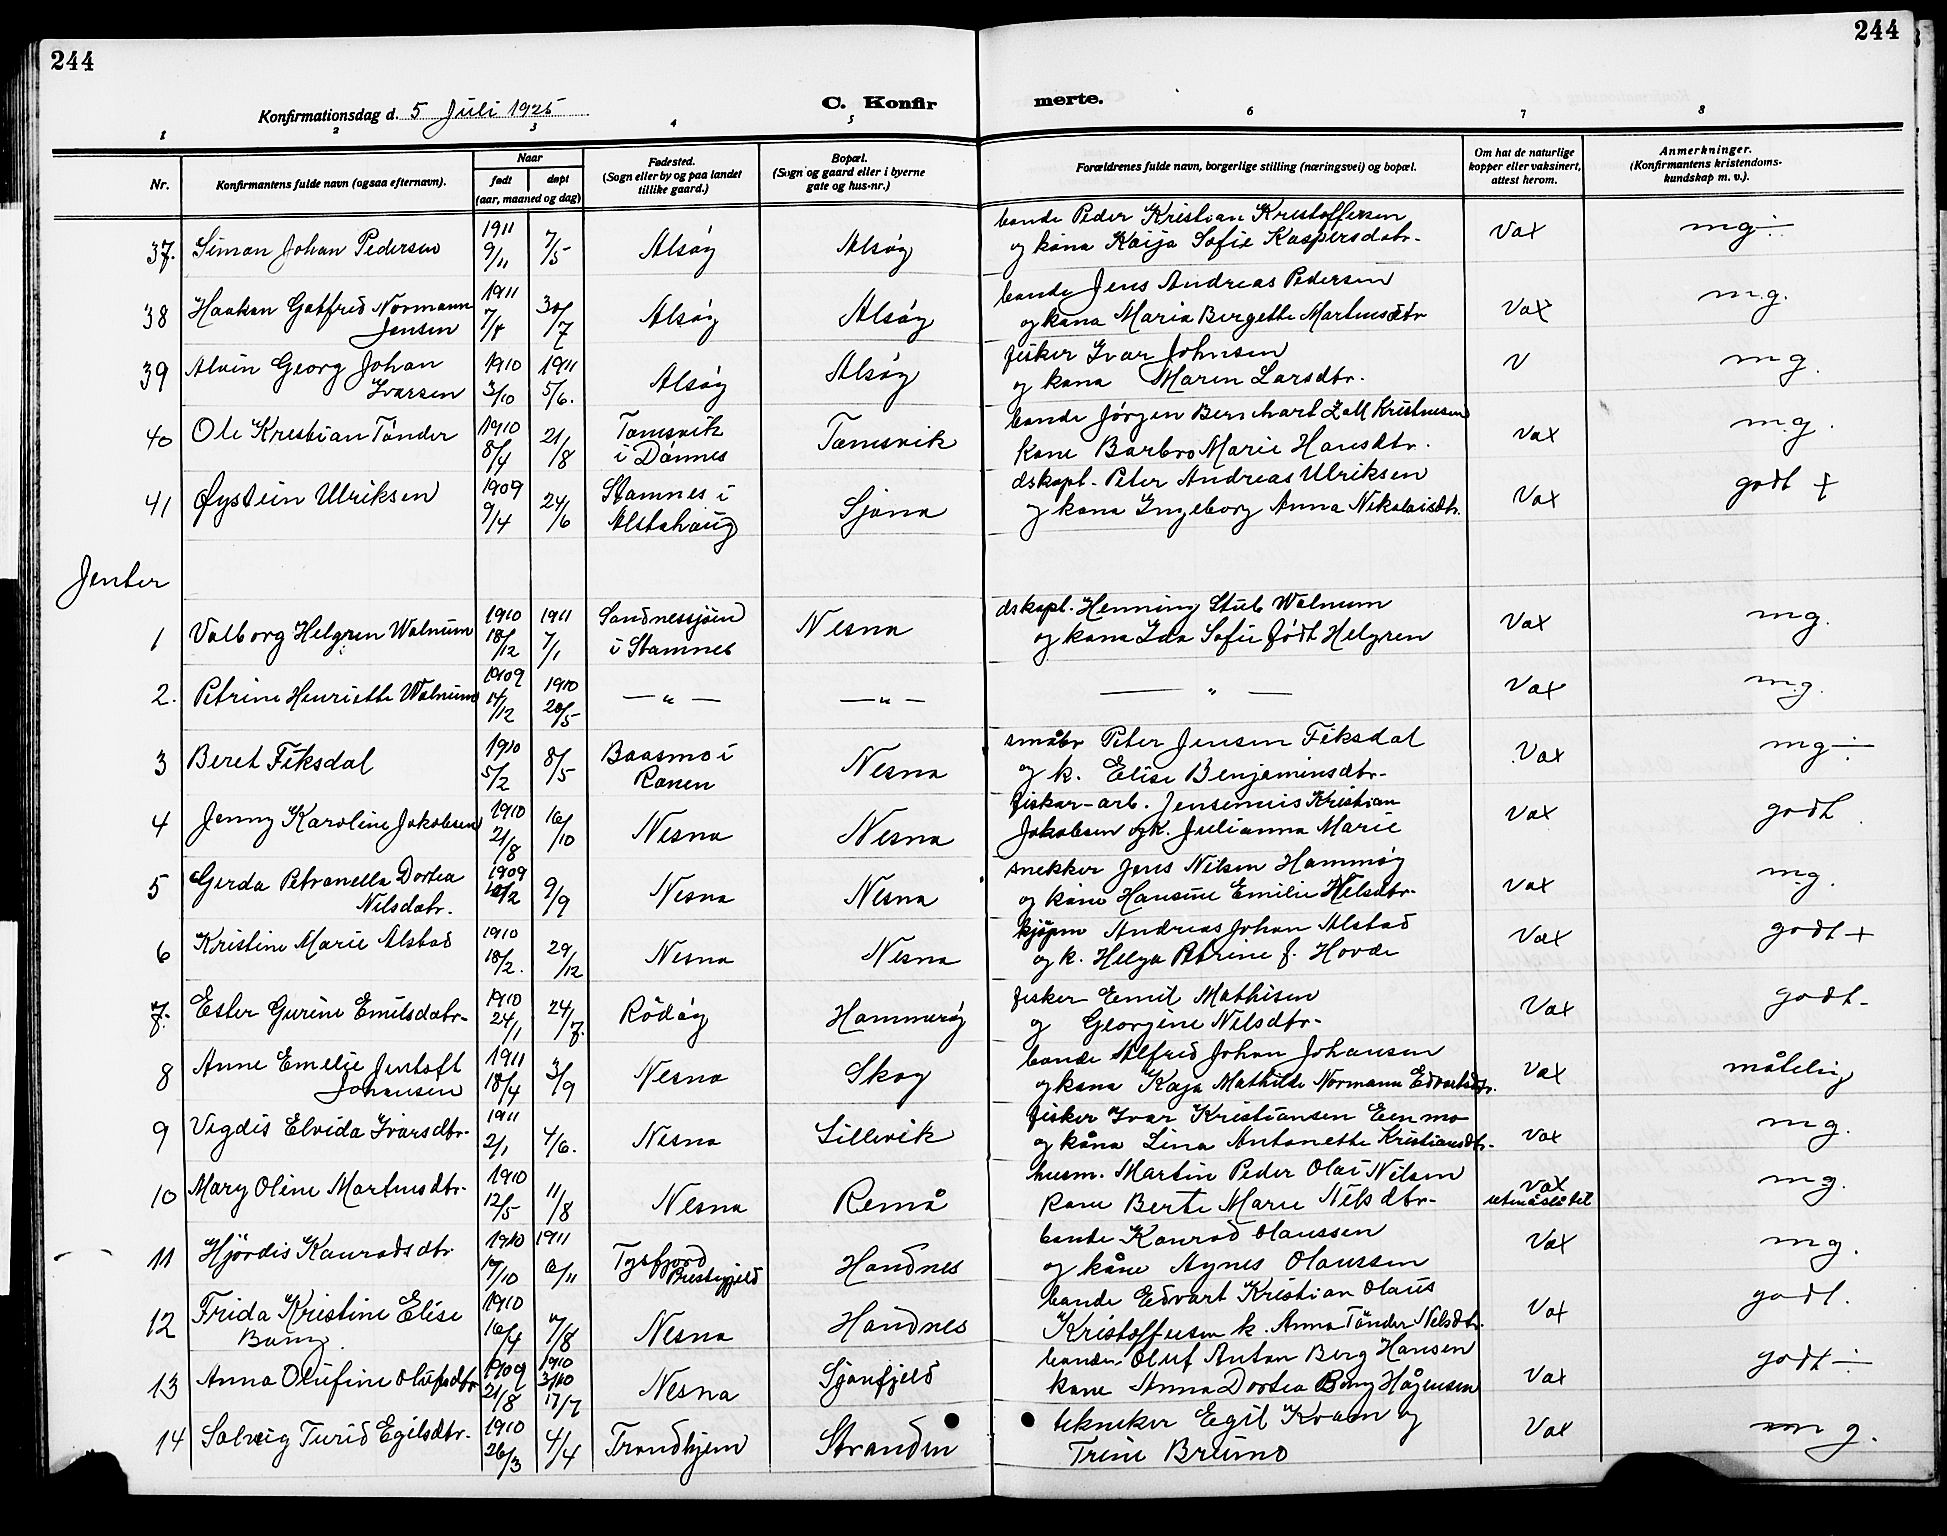 244
244
Konfirmationsdag d. 5 Juli 1925
C. Konfir
merte.
1 2 3 4 5 6 7 8
Nr.
Konfirmantens fulde navn (ogsaa efternavn).
Naar
født døpt
(aar, maaned og dag)
Fødested.
(Sogn eller by og paa landet
tillike gaard.)
Bopæl.
(Sogn og gaard eller i byerne
gate og hus-nr.)
Forældrenes fulde navn, borgerlige stilling (næringsvei) og bopæl.
Om hat de naturlige
kopper eller vaksinert,
attest herom.
Anmerkninger.
(Konfirmantens kristendoms-
kundskap m. v.).
37. Simon Johan Pedersen 1911 9/11 7/5 Alsøy Alsøy
bonde Peder Kristian Kristoffersen
og kona Kaija Sofie Kaspersdatr. Vax mg÷
38 Haakon Gotfred Normann
Jensen 1911 30/7 Alsøy Alsøy
bonde Jens Andreas Pedersen
og kona Maria Bergette Martinsdtr Vax m.g.
39 Alvin Georg Johan
Ivarsen 1910 3/10 1911 5/6. Alsøy Alsøy
fisker Ivar Johnsen
og kona Maren Larsdtr. V mg.
40 Ole Kristian Tønder 1910 8/4 21/8 Tomsvik
i Dønnes Tomsvik
bonde Jørgen Bernhart Zall Kristensen
kone Barbro Marie Hansdtr. Vax mg.
41 Øystein Ulriksen 1909 9/4 24/6 Stamnes i
Alstahaug Sjona
dskapt. Peter Andreas Ulriksen
og kona Ingeborg Anna Nikolaisdtr. Vax godt +
Jenter
1 Valborg Helgren Walnum 1910 18/12 1911 7/1 Sandnessjøen
i Stamnes Nesna
dskapt. Henning Stub Walnum
og kona Ida Sofie født Helgren Vax mg.
2. Petrine Henriette Walnum 1909 14/12 1910 20/5 — „ — — „ — — „ — Vax mg.
3 Beret Fiksdal 1910 5/2 8/5 Baasmo i
Ranen Nesna
småbr Peter Jensen Fiksdal
og k. Elise Benjaminsdtr. Vax mg÷
4 Jenny Karoline Jakobsen 1910 21/8 16/10 Nesna Nesna
fiskar-arb. Jensenius Kristian
Jakobsen og k. Julianna Marie Vax godt
5 Gerda Petranella Dortea
Nilsdatr. 1909 9/9 Nesna Nesna
snekker Jens Nilsen Hammøy
og kone Hansine Emilie Nelsdtr. Vax mg.
6 Kristine Marie Alstad 1910 18/2. 29/12 Nesna Nesna
kjøpm Andreas Johan Alstad
og k. Helga Petrine f. Hovde Vax godt+
7. Ester Gurine Emilsdatr. 1910 24/1 24/7. Rødøy Hammerøy
fisker Eemil Mathisen
og Georgine Nilsdtr. Vax godt-
8 Anne Emelie Jentoft
Johansen 1911 18/4 3/9 Nesna Skog
bonde Alfred Johan Johansen
og kona Kaja Mathilde Normann Edvartsdtr. Vax måtelig
9 Vigdis Elvida Ivarsdtr. 1911 2/1 4/6. Nesna Lillevik
fisker Ivar Kristiansen Een mo
og kåna Lina Antonette Kristiansdtr. Vax mg.
10 Mary Oline Martinsdtr. 1910 12/5 11/8 Nesna Remå
husm. Martin Peder Olai Nilsen
kone Berte Marie Nilsdtr. Vax mg.
11 Hjørdis Konradsdtr 1910 1911 6/11 Tysfjord
Prestegjeld Handnes
bonde Konrad Olaussen
og kåne Agnes Olaussen Vax mg.
12 Frida Kristine Elise
Bang. 1910 16/4 7/8 Nesna Handnes
bonde Edvart Kristian Olaus
Kristoffersen k. Anna Tønder Nelsdtr. Vax godt.
13 Anna Olufine Olufsdtr 1909 21/8 1910 17/7 Nesna Sjonfjeld
bonde Oluf Anton Berg Hansen
kone Anna Dortea Bang Hågensen Vax godt÷
14 Solveig Turid Egilsdtr. 1910 26/3 4/4 Trondhjem Stranden
tekniker Egil Kvam og
Trine Bruno Vax mg.